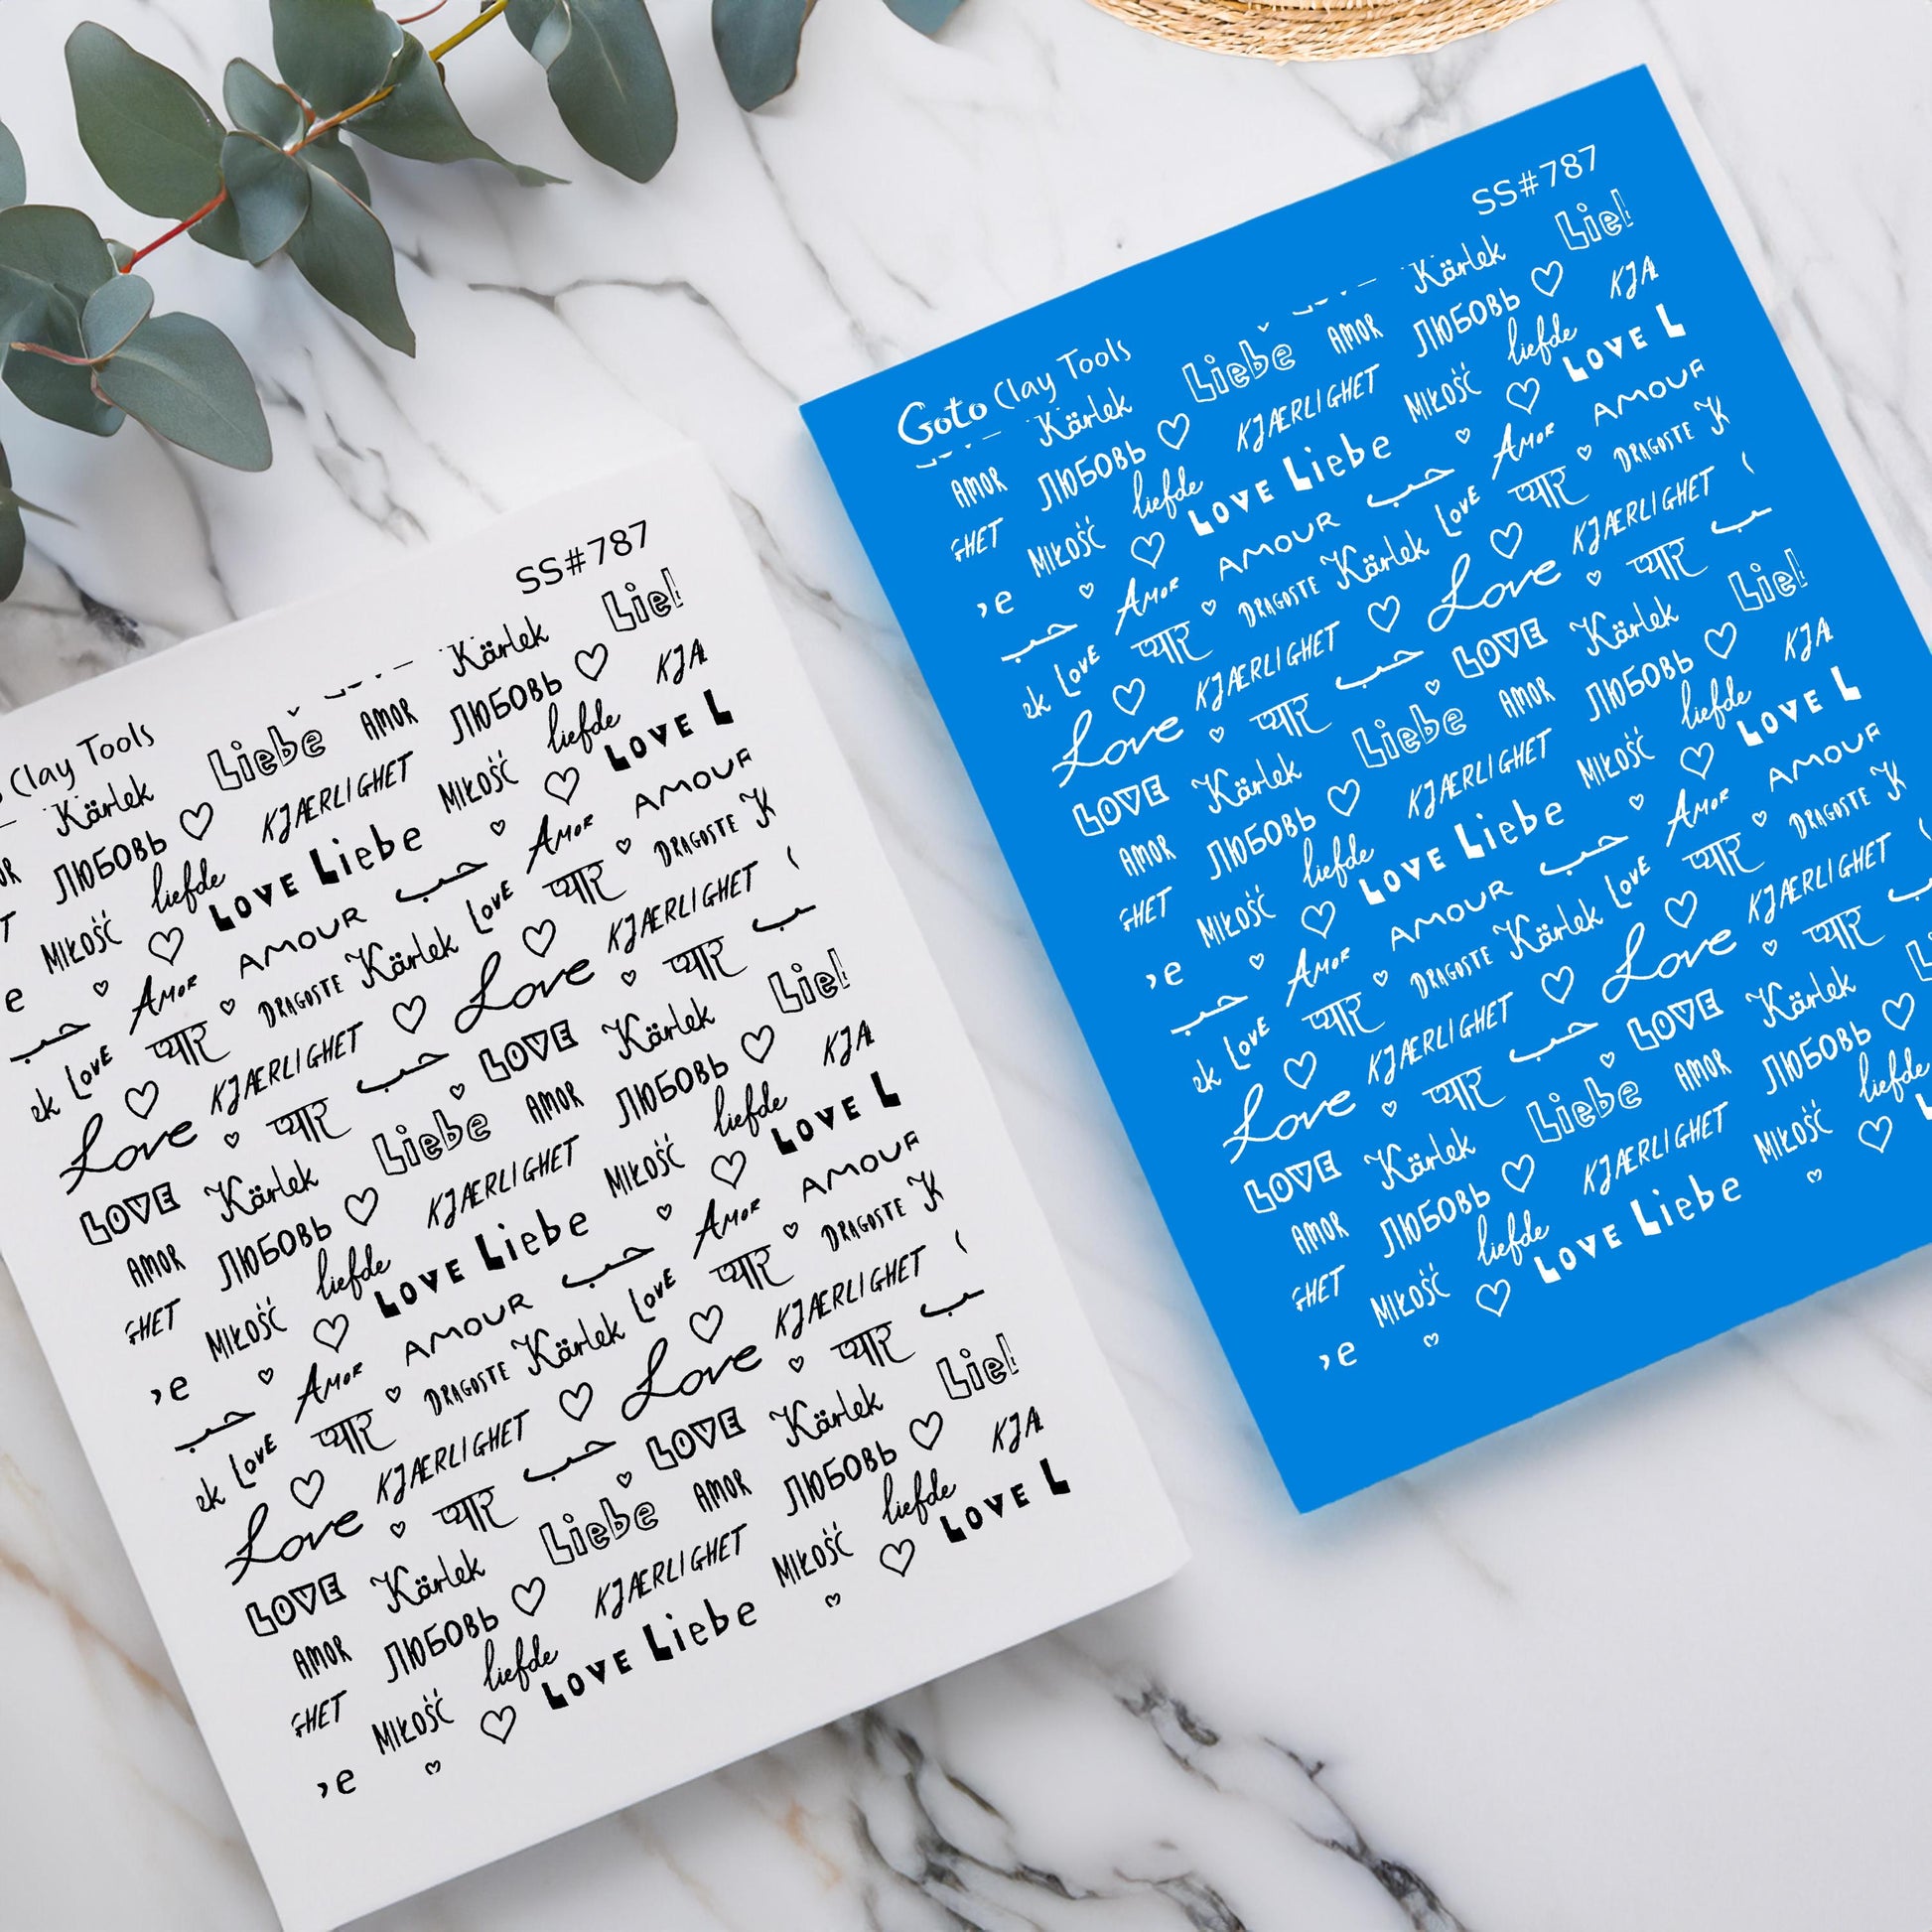 SS#787
Clay Tools
Kärlek Liebe Kärlek Liel
ЛЮБОВЬ AMOR ЛЮБОВЬ
KJÆRLIGHET KJA
liefde liefde
MIŁOŚĆ MIŁOŚĆ
LOVE Liebe LOVE L
e حب AMOR AMOUR حب AMOR AMOUR
ek LOVE प्यार DRAGOSTE Kärlek LOVE प्यार DRAGOSTE K
Love KJÆRLIGHET Love KJÆRLIGHET
प्यार حب प्यार
LOVE Kärlek Liebe LOVE Kärlek Liel
AMOR ЛЮБОВЬ AMOR ЛЮБОВЬ
GHET KJÆRLIGHET KJA
liefde liefde
MIŁOŚĆ MIŁOŚĆ
LOVE Liebe LOVE L
e حب AMOR AMOUR حب AMOR AMOUR
ek LOVE प्यार DRAGOSTE Kärlek LOVE प्यार DRAGOSTE K
Love KJÆRLIGHET Love KJÆRLIGHET
प्यार حب प्यार
LOVE Kärlek Liebe LOVE Kärlek Liel
AMOR ЛЮБОВЬ AMOR ЛЮБОВЬ
GHET KJÆRLIGHET KJA
liefde liefde
MIŁOŚĆ MIŁOŚĆ
LOVE Liebe LOVE L
e
SS#787
Goto Clay Tools
Kärlek Liebe Kärlek Liel
AMOR ЛЮБОВЬ AMOR ЛЮБОВЬ
GHET KJÆRLIGHET KJA
liefde liefde
MIŁOŚĆ MIŁOŚĆ
LOVE Liebe LOVE L
e حب AMOR AMOUR حب AMOR AMOUR
ek LOVE प्यार DRAGOSTE Kärlek LOVE प्यार DRAGOSTE K
Love KJÆRLIGHET Love KJÆRLIGHET
प्यार حب प्यार
LOVE Kärlek Liebe LOVE Kärlek Liel
AMOR ЛЮБОВЬ AMOR ЛЮБОВЬ
GHET KJÆRLIGHET KJA
liefde liefde
MIŁOŚĆ MIŁOŚĆ
LOVE Liebe LOVE L
e حب AMOR AMOUR حب AMOR AMOUR
ek LOVE प्यार DRAGOSTE Kärlek LOVE प्यार DRAGOSTE K
Love KJÆRLIGHET Love KJÆRLIGHET
प्यार حب प्यार
LOVE Kärlek Liebe LOVE Kärlek
AMOR ЛЮБОВЬ AMOR ЛЮБОВЬ
GHET KJÆRLIGHET
liefde liefde
MIŁOŚĆ MIŁOŚĆ
LOVE Liebe
e